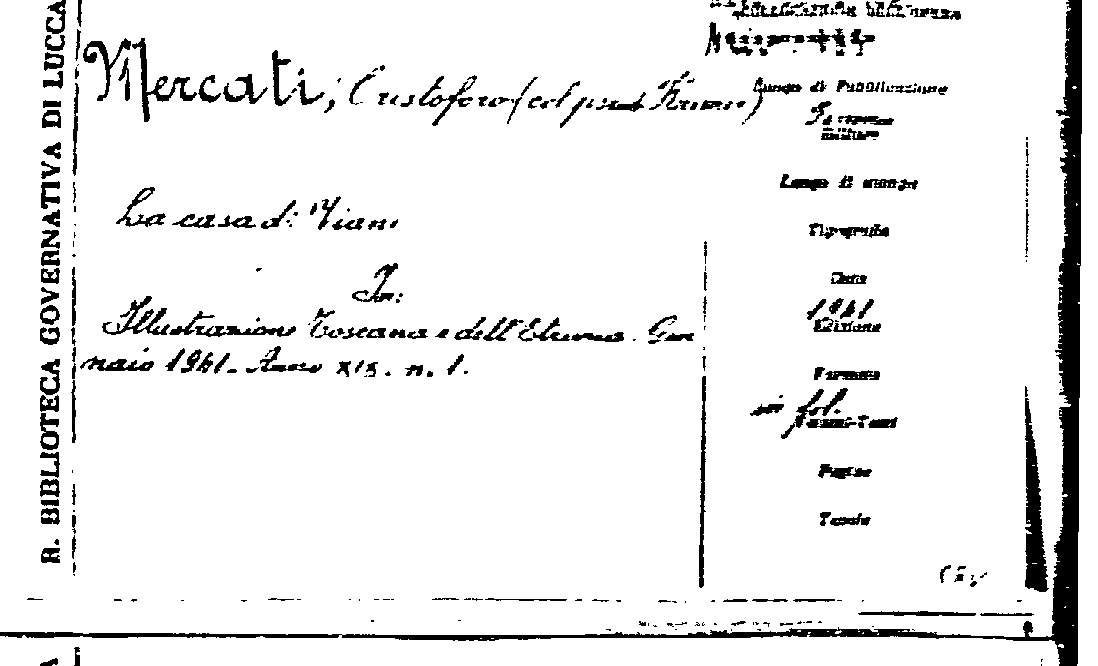 R. BIBLIOTECA GOVERNATIVA DI LUCCA
Mercati, Cristoforo (col pseud.
La casa di
In:
Illustrazione Toscana e dell'Etruria. Gen
naio 1941. Anno XIX. n. 1.
Luogo di Pubblicazione
Luogo di stampa
Tipografia
Data
1941
Edizione
Formato
in fol.
Pagine
Tavole